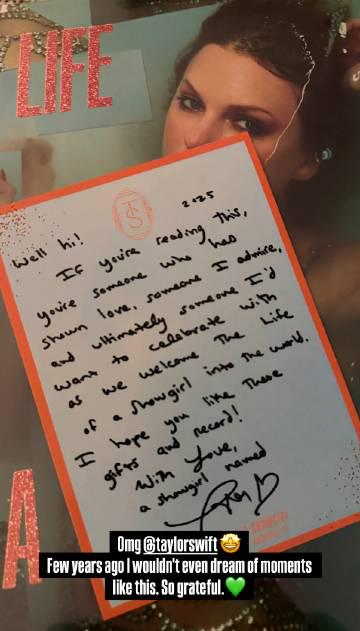 LIFE
A
TS
2025
Well hi!
If you're reading this,
you're someone who has
shown love, someone I admire,
and ultimately someone I'd
want to celebrate with
as we welcome The Life
of a Showgirl into the world.
I hope you like these
gifts and record!
With love,
a showgirl named
Taylor
Omg @taylorswift 🤩
Few years ago I wouldn't even dream of moments
like this. So grateful.💚